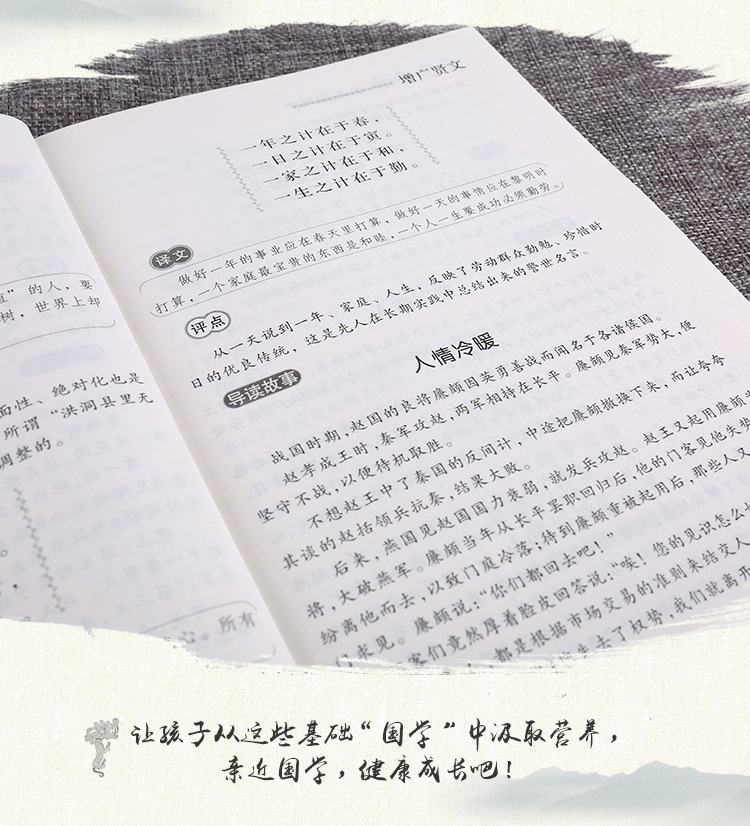 增广贤文
一年之计在于春，
一日之计在于寅。
一家之计在于和，
一生之计在于勤。
译文
做好一年的事业应在春天里打算，做好一天的事情应在黎明时
打算，一个家庭最宝贵的东西是和睦，一个人一生要成功必须勤劳。
评点
从一天说到一年、家庭、人生，反映了劳动群众勤勉、珍惜时
日的优良传统，这是先人在长期实践中总结出来的警世名言。
导读故事
人情冷暖
战国时期，赵国的良将廉颇因英勇善战而闻名于各诸侯国。
赵孝成王时，秦军攻赵，两军相持在长平。廉颇见秦军势大，便
坚守不战，以便待机取胜。
不想赵王中了秦国的反间计，中途把廉颇撤换下来，而让夸夸
其谈的赵括领兵抗秦，结果大败。
后来，燕国见赵国国力衰弱，就发兵攻赵。赵王又起用廉颇
将，大破燕军。廉颇当年从长平罢职回归后，他的门客见他失势
纷离他而去，以致门庭冷落；待到廉颇重被起用后，那些人又
门求见。廉颇说：“你们都回去吧！”
客们竟然厚着脸皮回答说：“唉！您的见识怎么
都是根据市场交易的准则来结交人
失去了权势，我们就离开
”的人，要
树，世界上却
面性、绝对化也是
所谓“洪洞县里无
调整的。
心。所有
让孩子从这些基础“国学”中汲取营养，
亲近国学，健康成长吧！